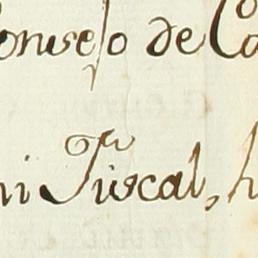 onsejo de Ca
ni Fiscal, h